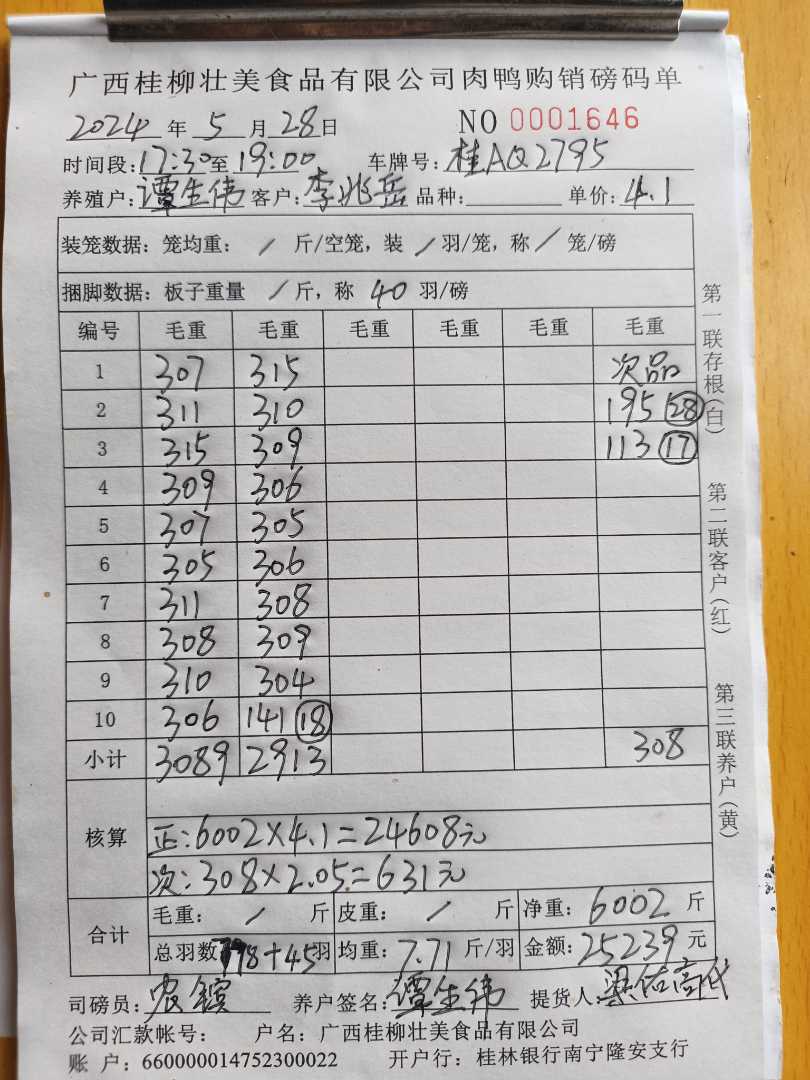 广西桂柳壮美食品有限公司肉鸭购销磅码单
2024年5月28日 NO 0001646
时间段:17:30至19:00 车牌号:桂AQ2795
养殖户:谭生伟 客户:李兆岳 品种: 单价:4.1
装笼数据:笼均重: / 斤/空笼,装 / 羽/笼,称 / 笼/磅
捆脚数据:板子重量 / 斤,称 40 羽/磅
编号 毛重 毛重 毛重 毛重 毛重 毛重
1 307 315 次品
2 311 310 195 28
3 315 309 113 17
4 309 306
5 307 305
6 305 306
7 311 308
8 308 309
9 310 304
10 306 141 18
小计 3089 2913 308
核算
正:6002×4.1=24608元
次:308×2.05=631元
合计
毛重: / 斤 皮重: / 斤 净重:6002斤
总羽数 798+45羽 均重:7.71斤/羽 金额:25239元
司磅员:农镔 养户签名:谭生伟 提货人:
公司汇款帐号: 户名:广西桂柳壮美食品有限公司
账 户:660000014752300022 开户行:桂林银行南宁隆安支行
第一联存根(白)
第二联客户(红)
第三联养户(黄)